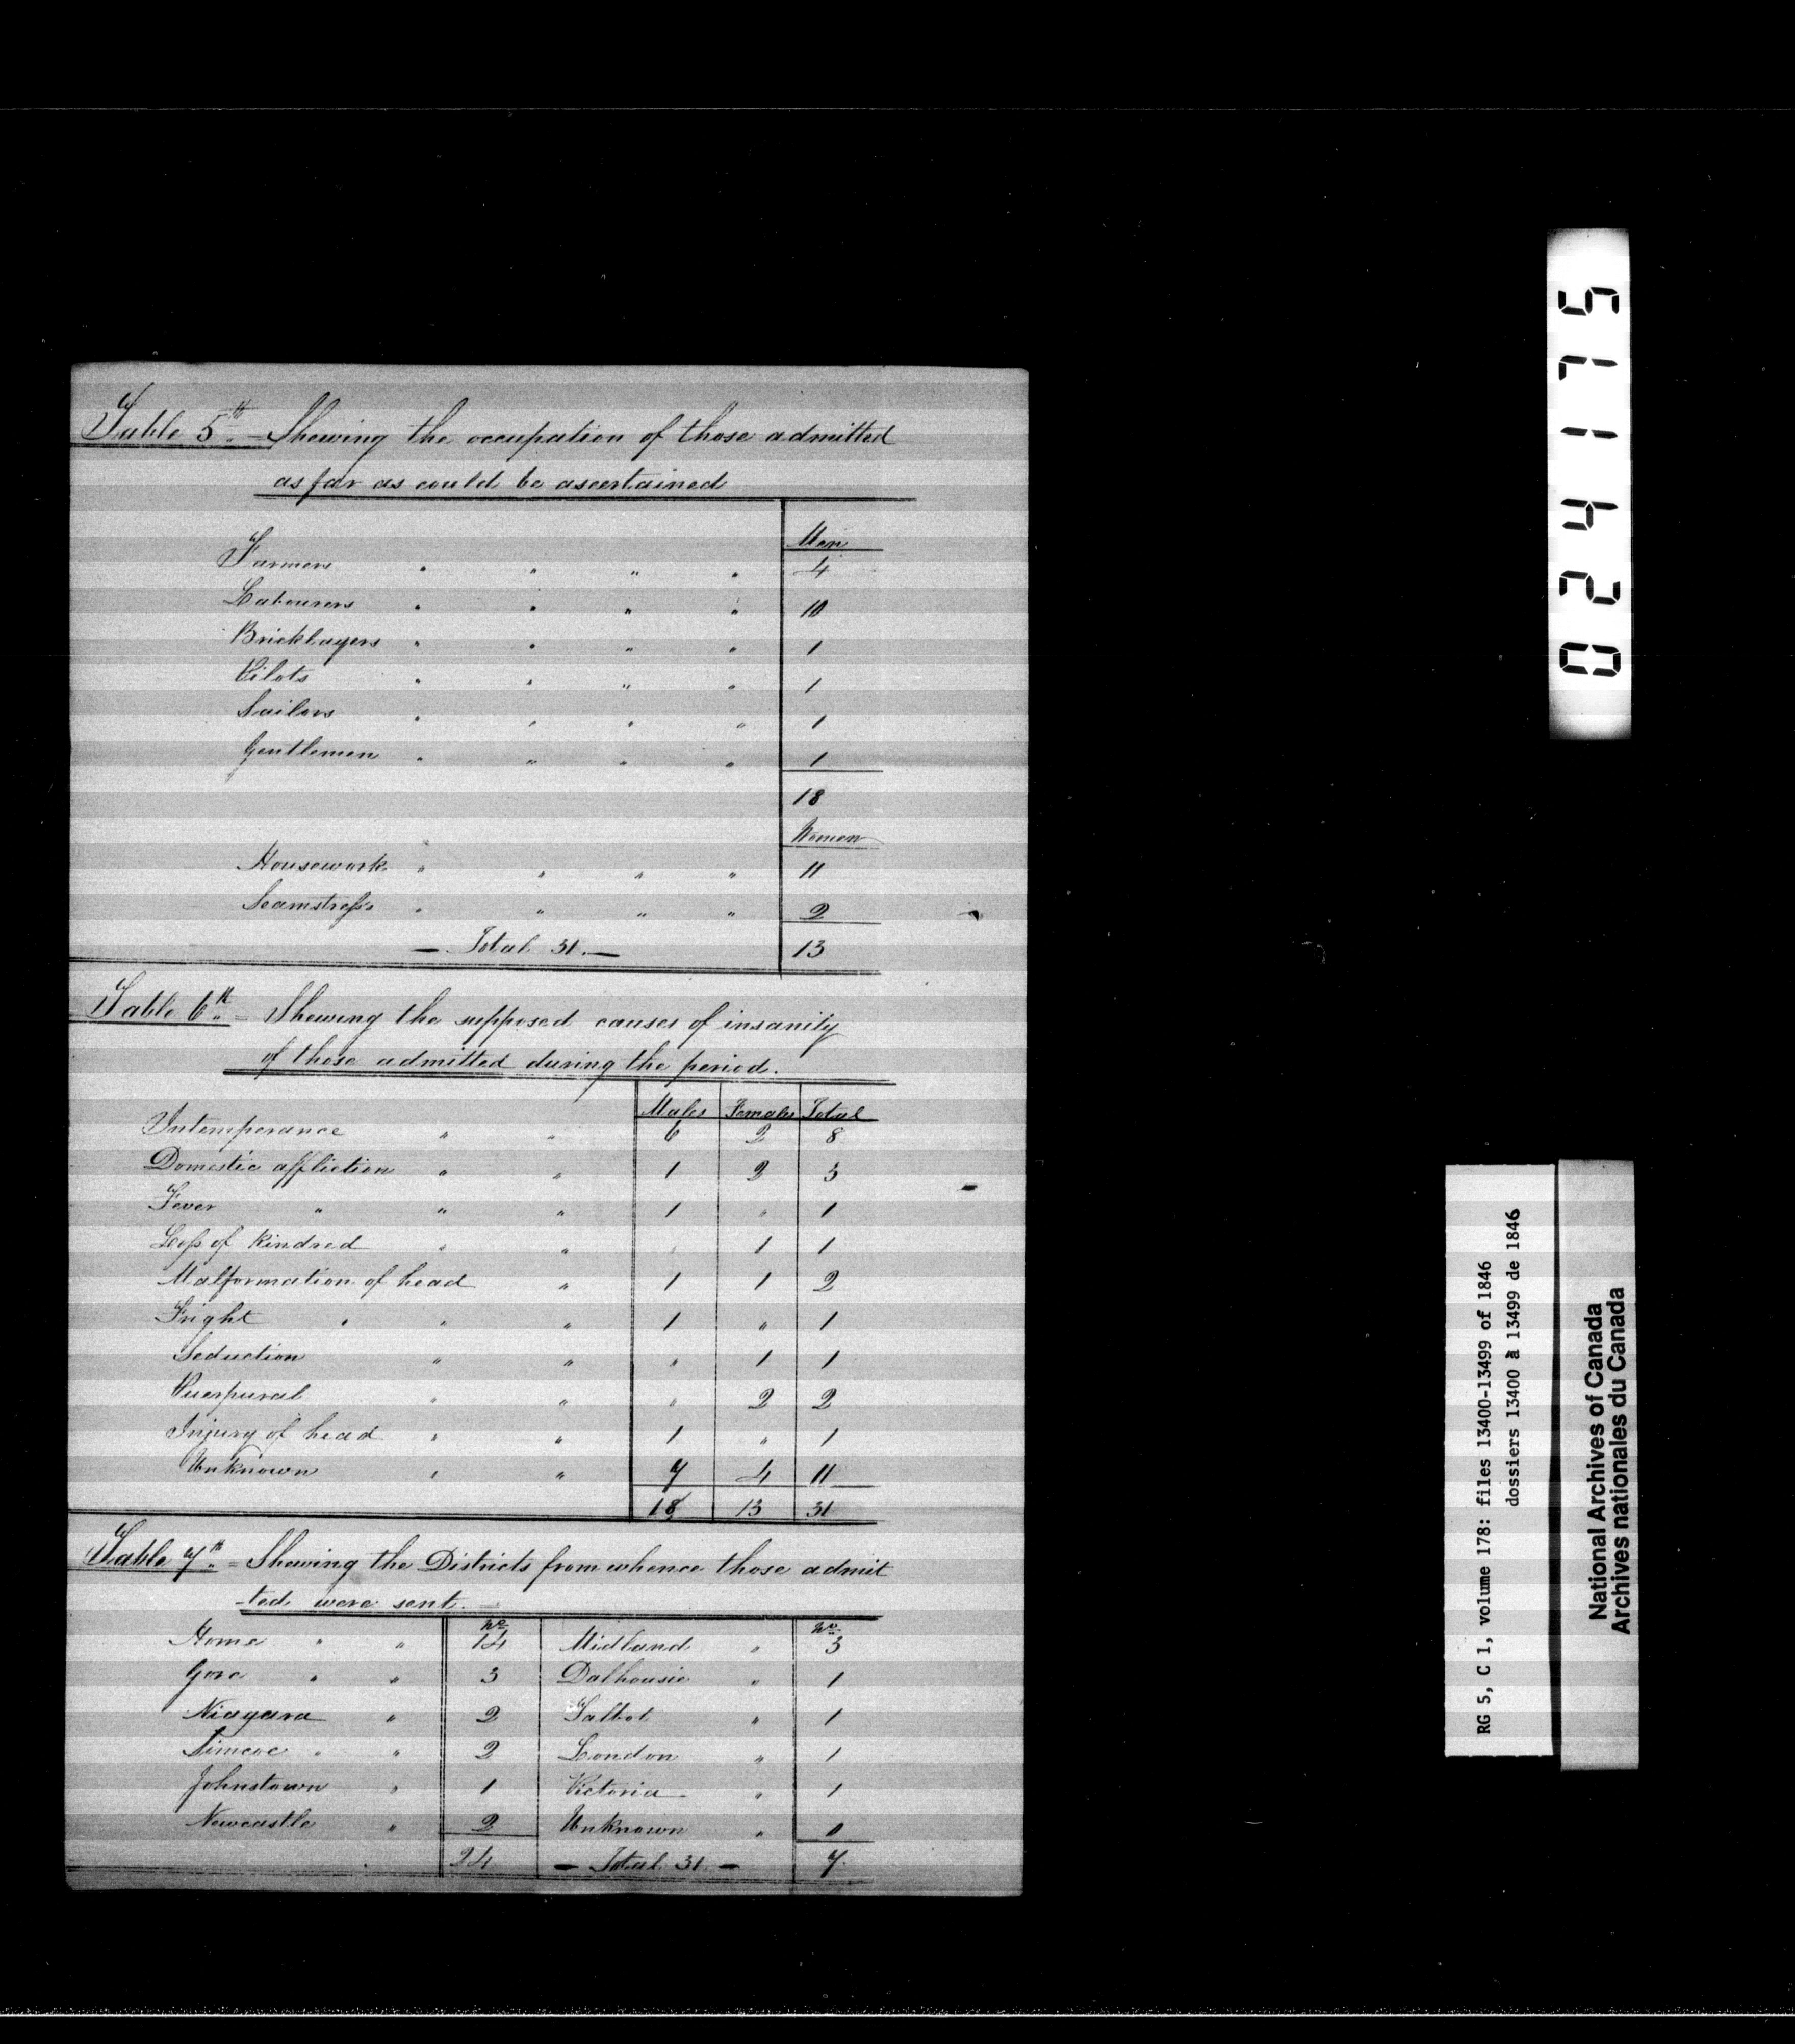 Table 5th. = Shewing the occupation of those admitted
as far as could be ascertained
Men
Farmers " " " " 4
Labourers " " " " 10
Bricklayers " " " " 1
Pilots " " " " 1
Sailors " " " " 1
Gentlemen " " " " 1
18
Women
Housework " " " " 11
Seamstress " " " " 2
— Total 31. — 13
Table 6th. = Shewing the supposed causes of insanity
of those admitted during the period.
Males Females Total
Intemperance " " 6 2 8
Domestic affliction " " 1 2 3
Fever " " " 1 " 1
Loss of Kindred " " " 1 1
Malformation of head " 1 1 2
Fright " " " 1 " 1
Seduction " " " 1 1
Puerpural " " " 2 2
Injury of head " " 1 " 1
Unknown " " 7 4 11
18 13 31
Table 7th. = Shewing the Districts from whence those admit
-ted were sent. —
No. No.
Home " " 14 Midland " 3
Gore " " 3 Dalhousie " 1
Niagara " 2 Talbot " 1
Simcoe " " 2 London " 1
Johnstown " 1 Victoria " 1
Newcastle " 2 Unknown " 0
24 — Total 31 — 7.
024175
RG 5, C 1, volume 178: files 13400-13499 of 1846
dossiers 13400 à 13499 de 1846
National Archives of Canada
Archives nationales du Canada